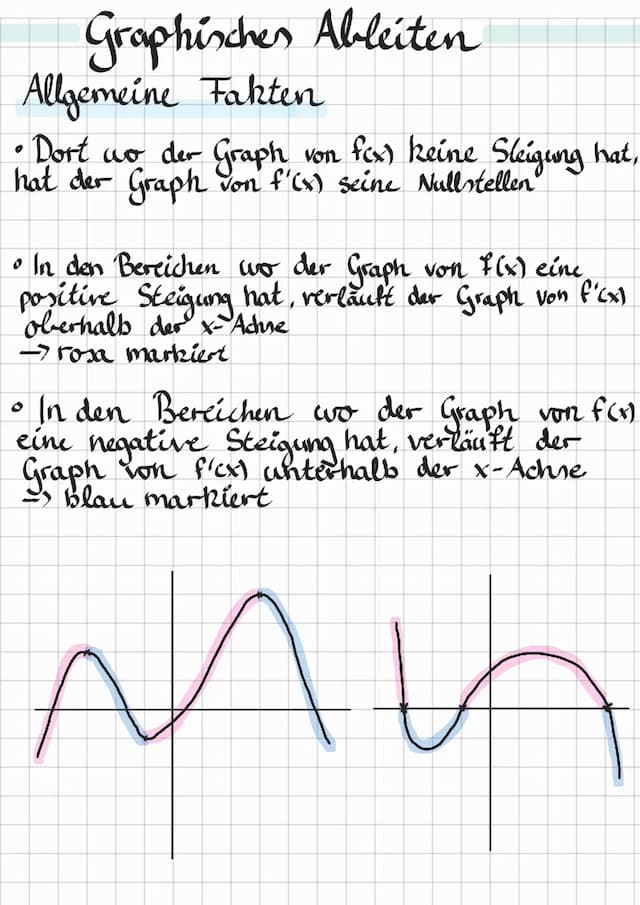 Graphisches Ableiten
Allgemeine Fakten
• Dort wo der Graph von f(x) keine Steigung hat,
hat der Graph von f'(x) seine Nullstellen
• In den Bereichen wo der Graph von f(x) eine
positive Steigung hat, verläuft der Graph von f'(x)
oberhalb der x-Achse
→ rosa markiert
• In den Bereichen wo der Graph von f(x)
eine negative Steigung hat, verläuft der
Graph von f'(x) unterhalb der x-Achse
=> blau markiert